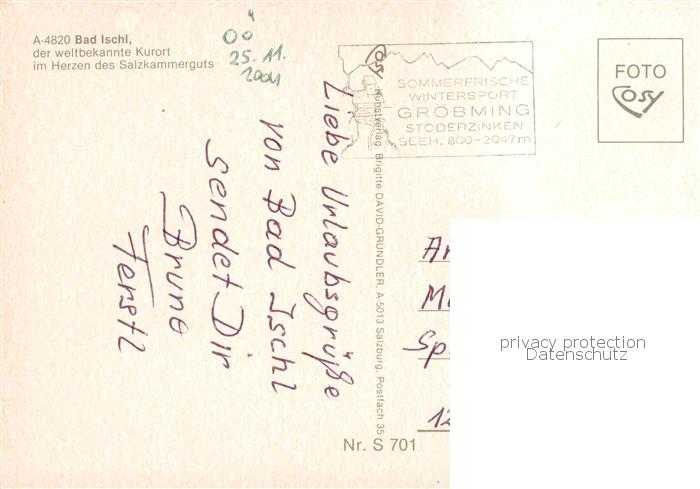 A-4820 Bad Ischl,
der weltbekannte Kurort
im Herzen des Salzkammerguts
OÖ
25.11.
2001
SOMMERFRISCHE
WINTERSPORT
GRÖBMING
STODERZINKEN
SEEH. 800-2047m
FOTO
Cosy
Liebe Urlaubsgrüße
von Bad Ischl
sendet Dir
Bruno
Ferstl
Cosy Kunstverlag, Brigitte DAVID-GRÜNDLER, A-5013 Salzburg, Postfach 35
Nr. S 701
Sp
12
privacy protection
Datenschutz